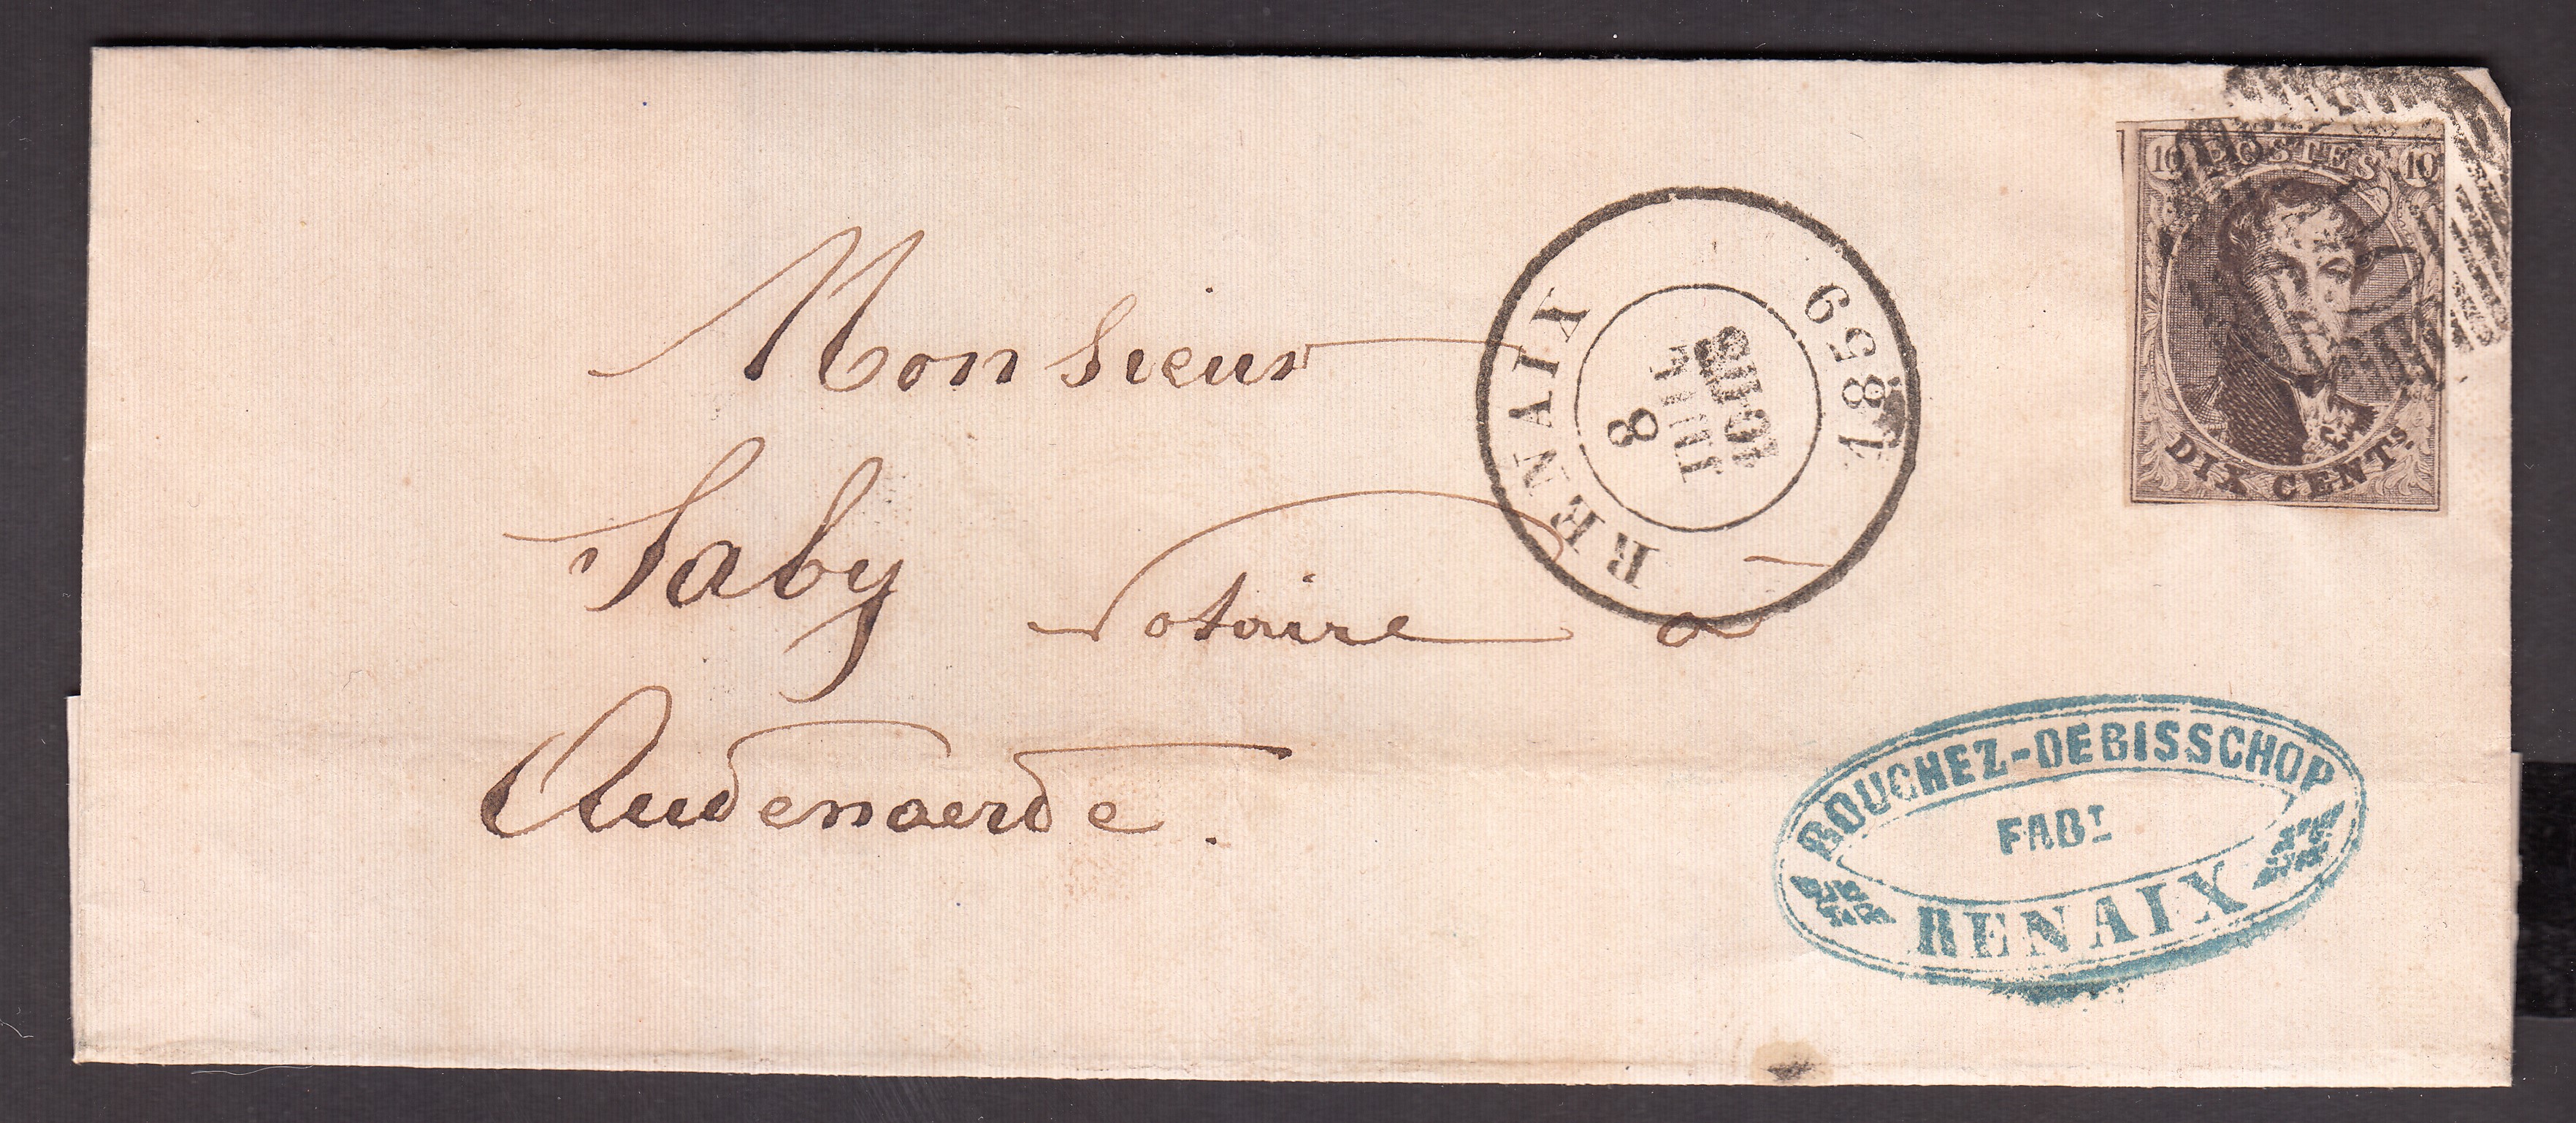 10 POSTES 10
DIX CENTS.
RENAIX
1859
8
JUIL
Monsieur
Saby Notaire a
Audenaerde.
BOUCHEZ-DEBISSCHOP
FABT
RENAIX